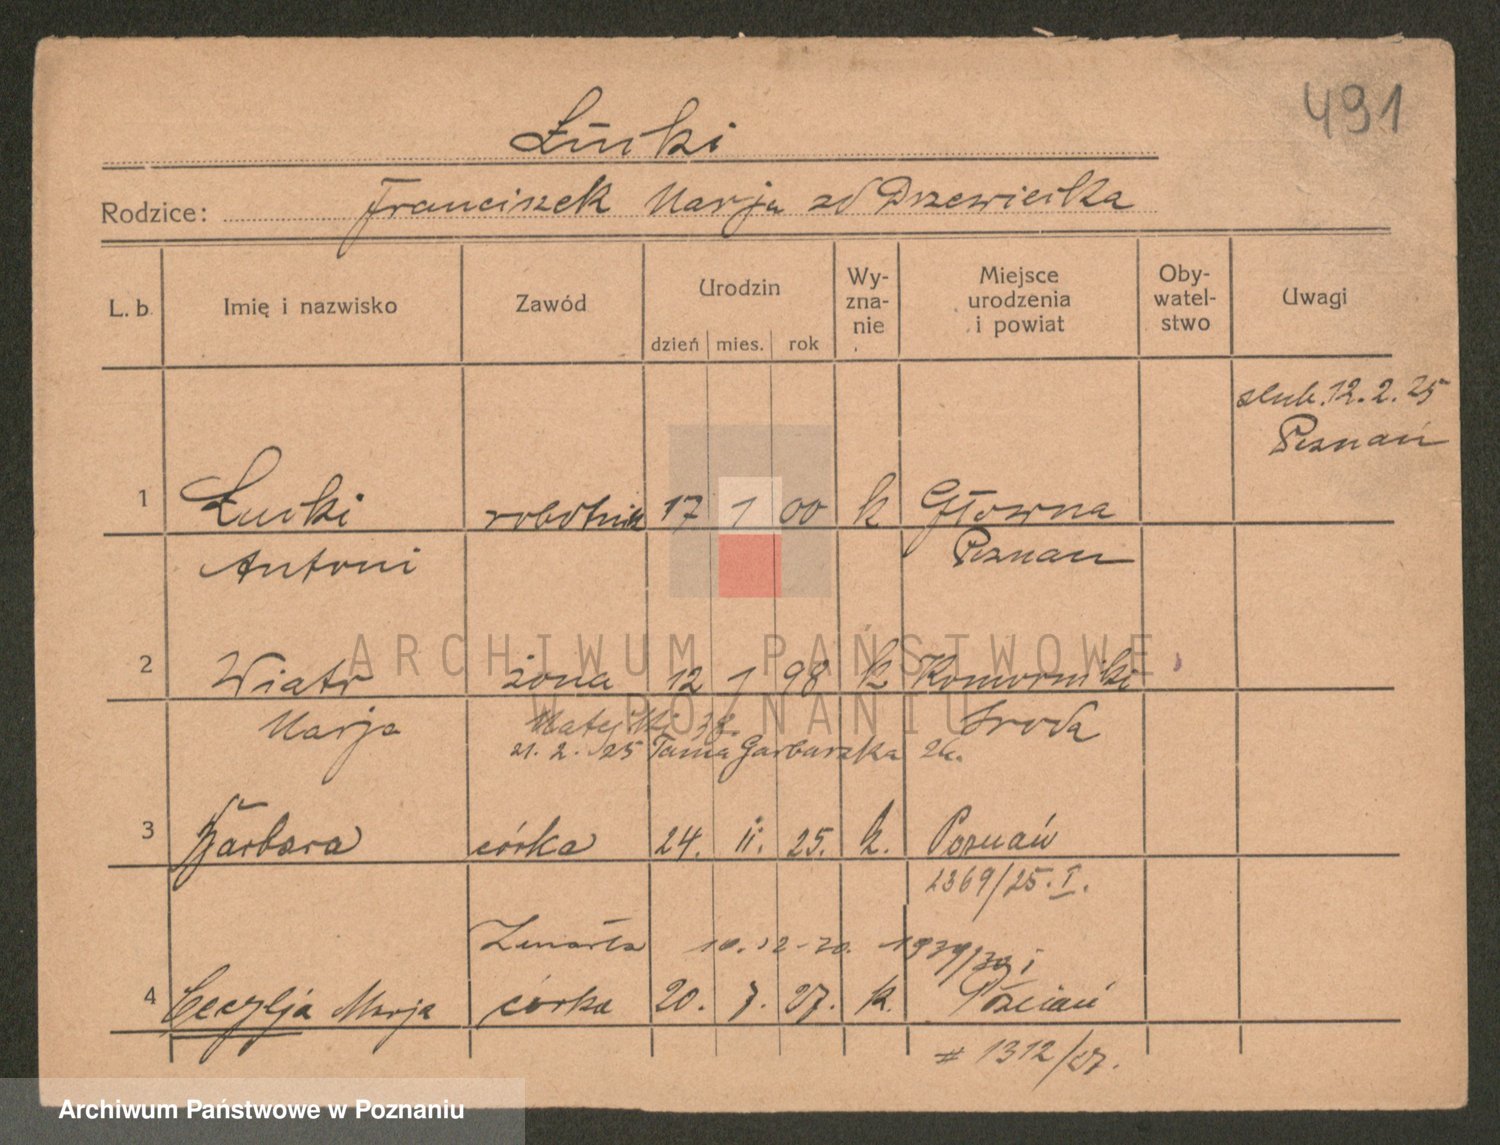 491
Łucki
Rodzice: Franciszek Marja zd Drzewiecka
L. b. Imię i nazwisko Zawód Urodzin Wy-zna-nie Miejsce urodzenia i powiat Oby-watel-stwo Uwagi
dzień mies. rok
ślub. 12.2.25
Poznań
1 Łucki robotnik 17 1 00 k Główna
Antoni Poznań
2 Wiatr żona 12 1 98 k Komorniki
Marja Środa
Matejki 38.
21. 2. 25 Tama Garbarska 26.
3 Barbara córka 24. II. 25. k. Poznań
2369/25. I.
Zmarła 10. 12 - 20. 1939/30 i
4 Cecylja Marja córka 20. 7. 27. k. Poznań
# 1312/27.
ARCHIWUM PAŃSTWOWE
W POZNANIU
Archiwum Państwowe w Poznaniu